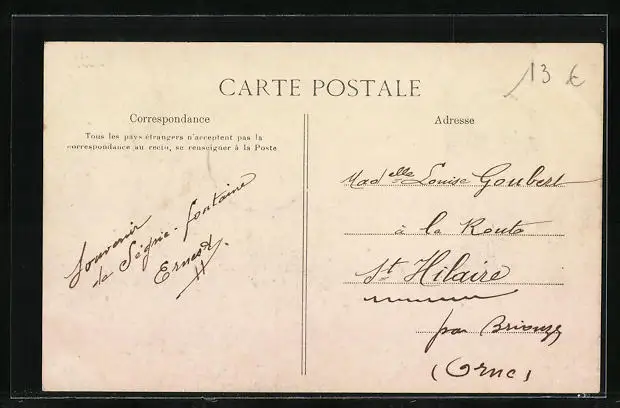 13 €
CARTE POSTALE
Correspondance
Tous les pays étrangers n'acceptent pas la
correspondance au recto, se renseigner à la Poste
Souvenir
de Ségrie-Fontaine
Ernest
Adresse
Madelle Louise Goubert
à la Route
St Hilaire
par Briouze
(Orne)